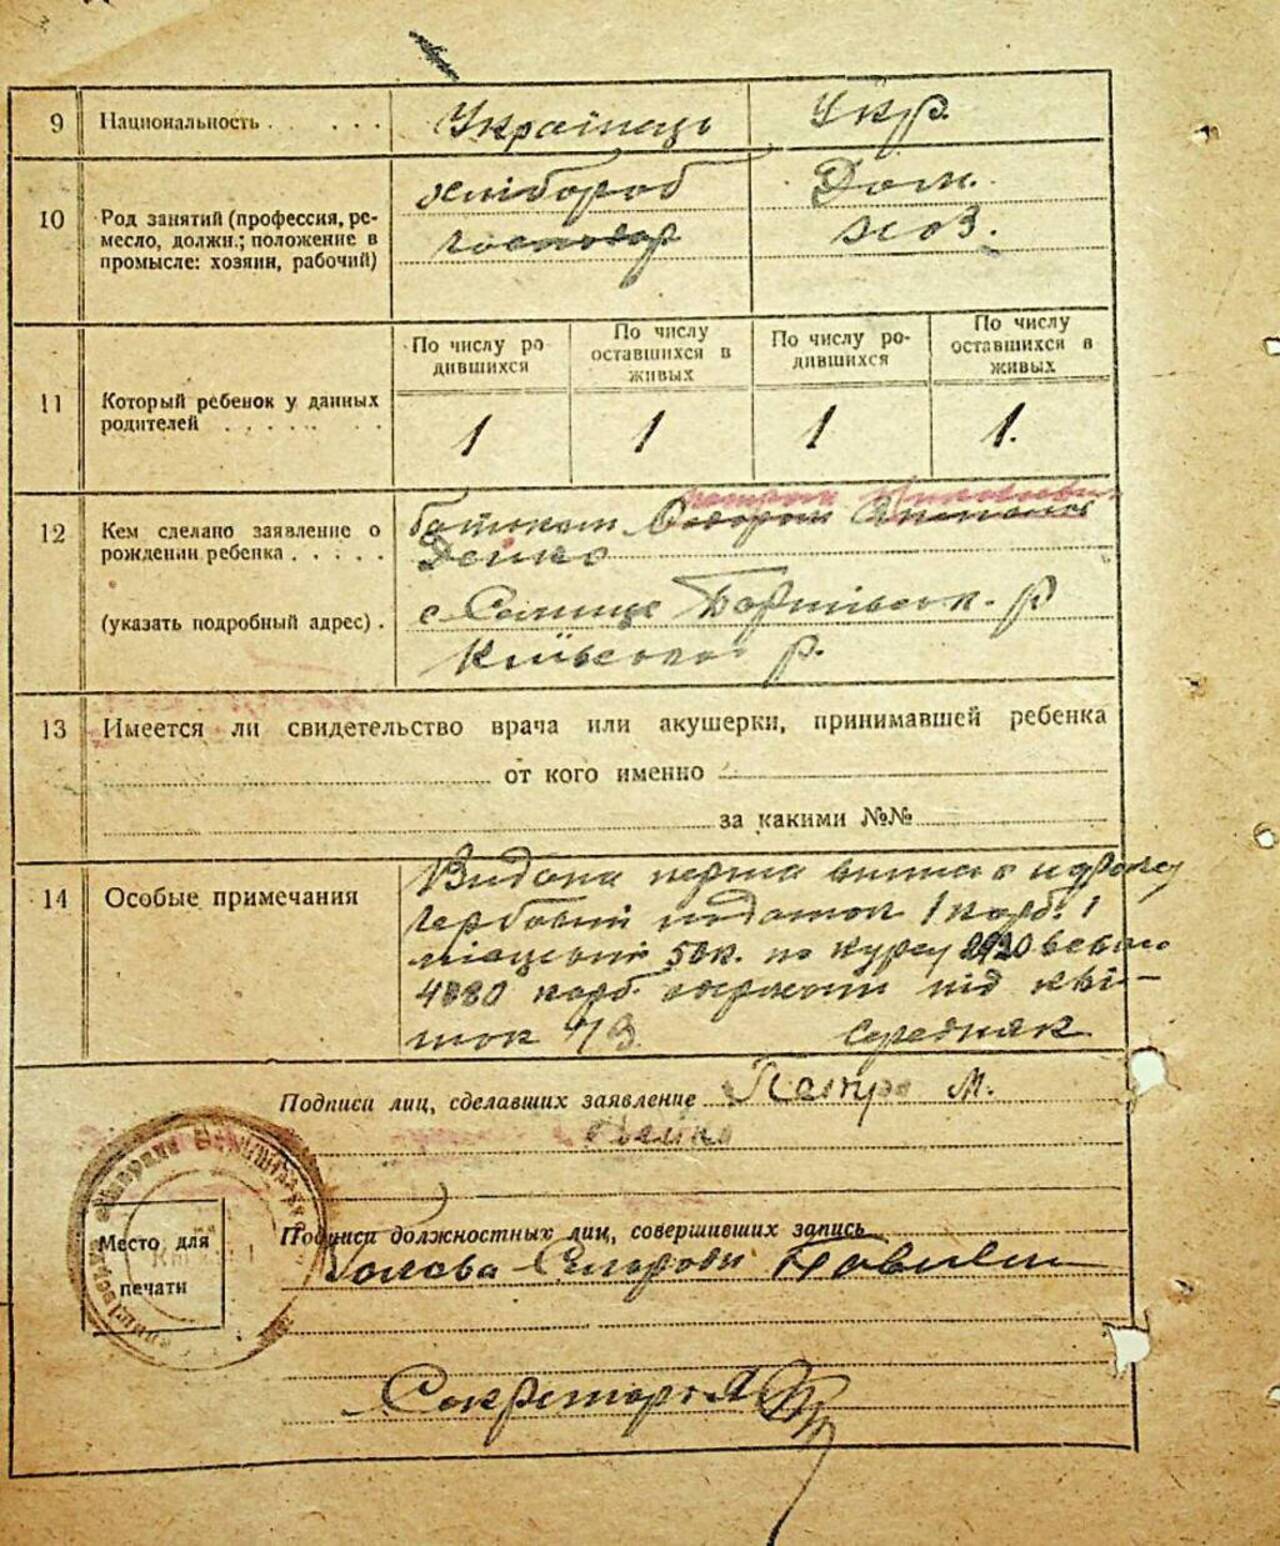 9 Национальность Українець Укр.
10 Род занятий (профессия, ре-
месло, должн.; положение в
промысле: хозяин, рабочий)
хлібороб Дом.
господар хоз.
11 Который ребенок у данных
родителей
По числу ро-
дившихся
По числу
оставшихся в
живых
По числу ро-
дившихся
По числу
оставшихся в
живых
1 1 1 1.
12 Кем сделано заявление о
рождении ребенка
(указать подробный адрес).
батьком Федором
Дейко
с. Бортківськ. р
Київської р.
13 Имеется ли свидетельство врача или акушерки, принимавшей ребенка
от кого именно
за какими №№
14 Особые примечания
Видана перша
гербовий податок 1 карб. 1
місцевий 50к. по курсу
карб. одержани під кві-
ток середняк
Подписи лиц, сделавших заявление Петро М.
Дейко
Место для
печати
Подписи должностных лиц, совершивших запись
Голова Сільради
Секретар